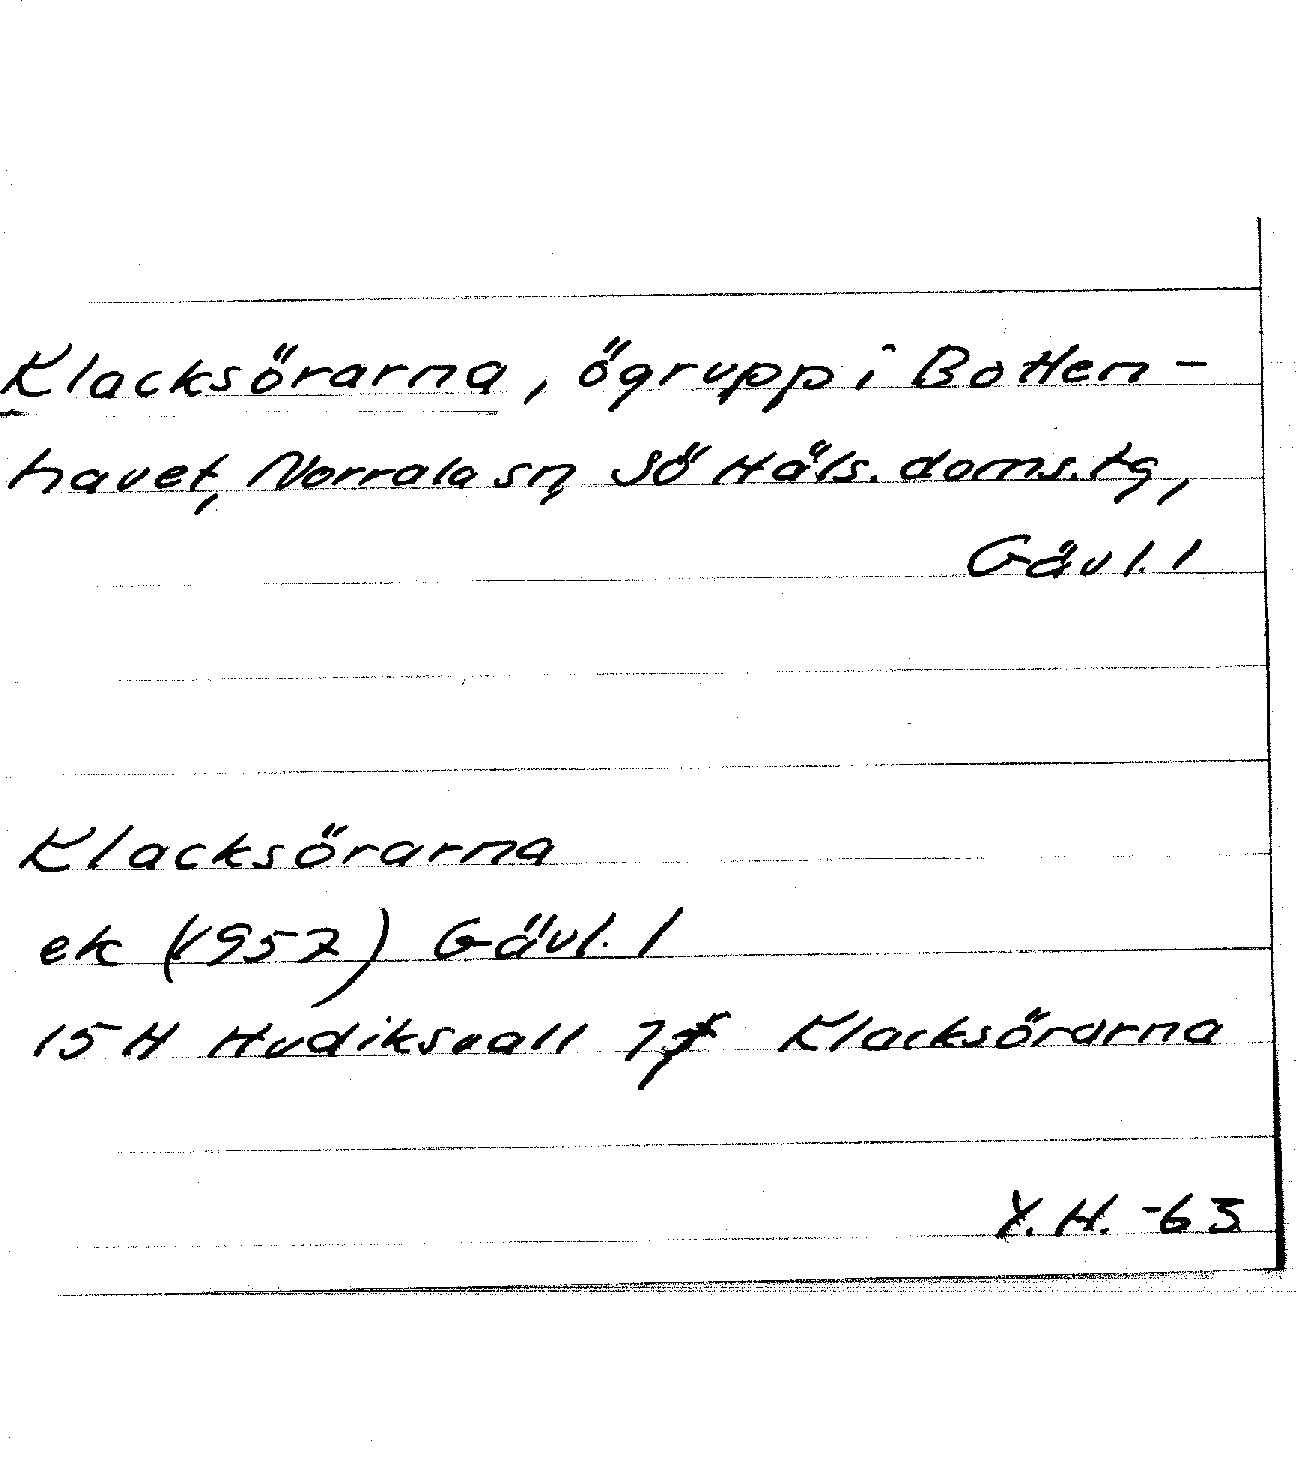 Klacksörarna, ögrupp i Botten-
havet, Norrala sn, Sö Häls. doms.tg,
Gävl. l
Klacksörarna
ek (1957) Gävl. l
15 H Hudiksvall 7f Klacksörarna
Y.H. -63